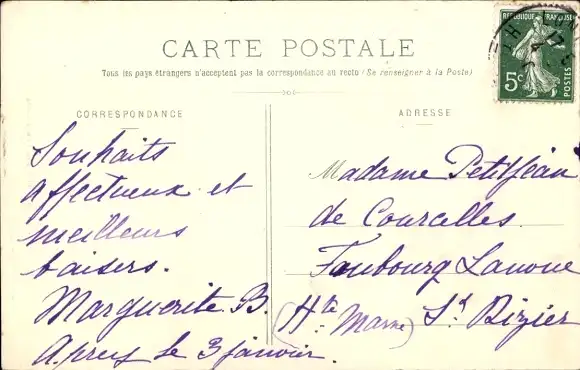 CARTE POSTALE
Tous les pays étrangers n'acceptent pas la correspondance au recto (Se renseigner à la Poste)
CORRESPONDANCE
Souhaits
affectueux et
meilleurs
baisers.
Marguerite B.
le 3 janvier.
ADRESSE
Madame Petitjean
de Courcelles
Faubourg Lanoue
(Hte Marne) St Dizier
RÉPUBLIQUE FRANÇAISE
5c
POSTES